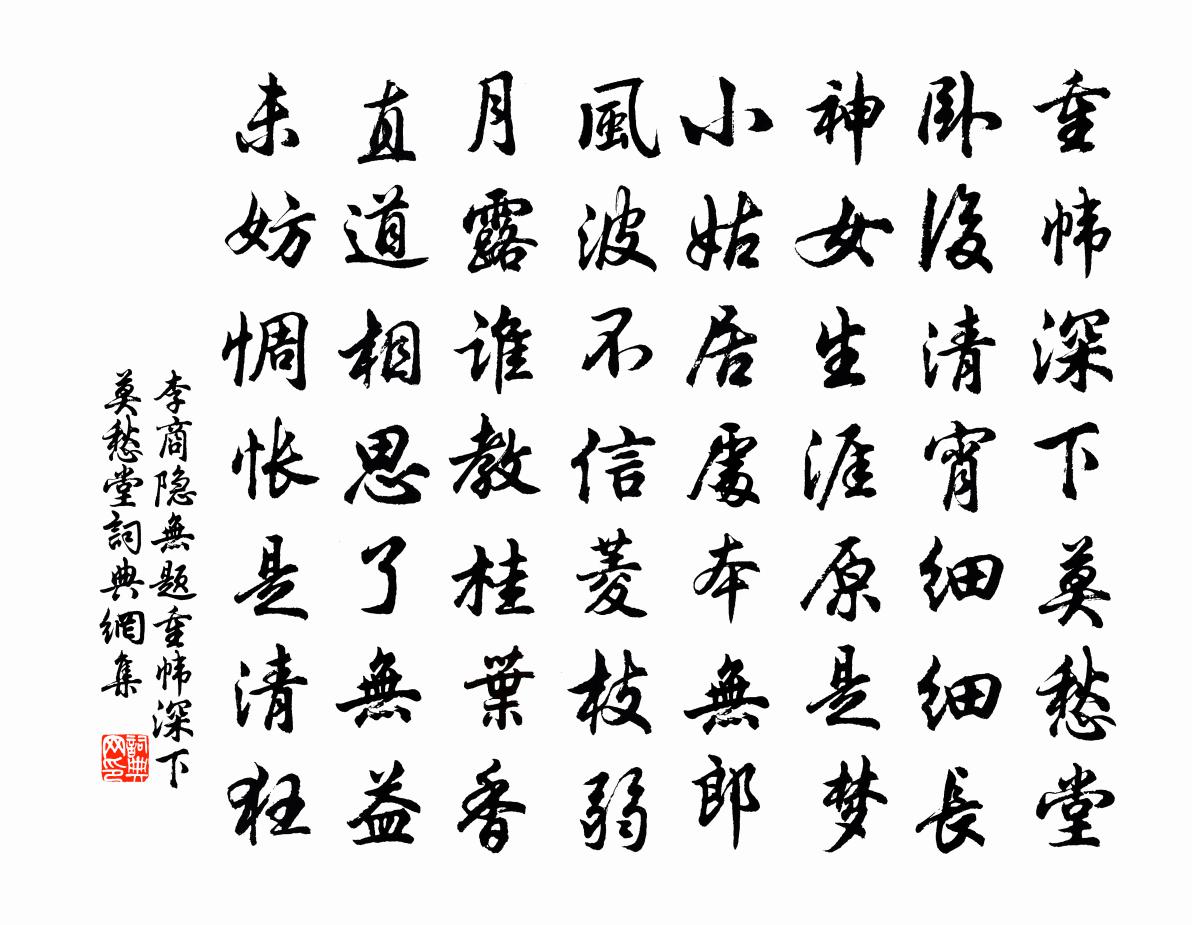 重帏深下莫愁堂
卧後清宵细细長
神女生涯原是梦
小姑居處本無郎
風波不信菱枝弱
月露谁教桂葉香
直道相思了無益
未妨惆怅是清狂
李商隐無题重帏深下
莫愁堂詞典網集
詞典
网印